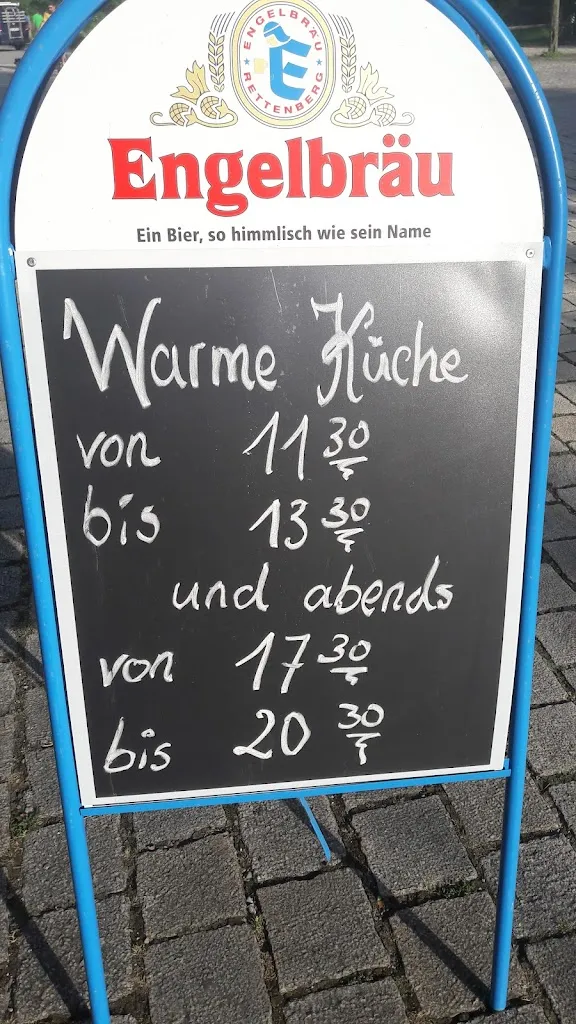 ENGELBRÄU
RETTENBERG
Engelbräu
Ein Bier, so himmlisch wie sein Name
Warme Küche
von 11 30
bis 13 30
und abends
von 17 30
bis 20 30